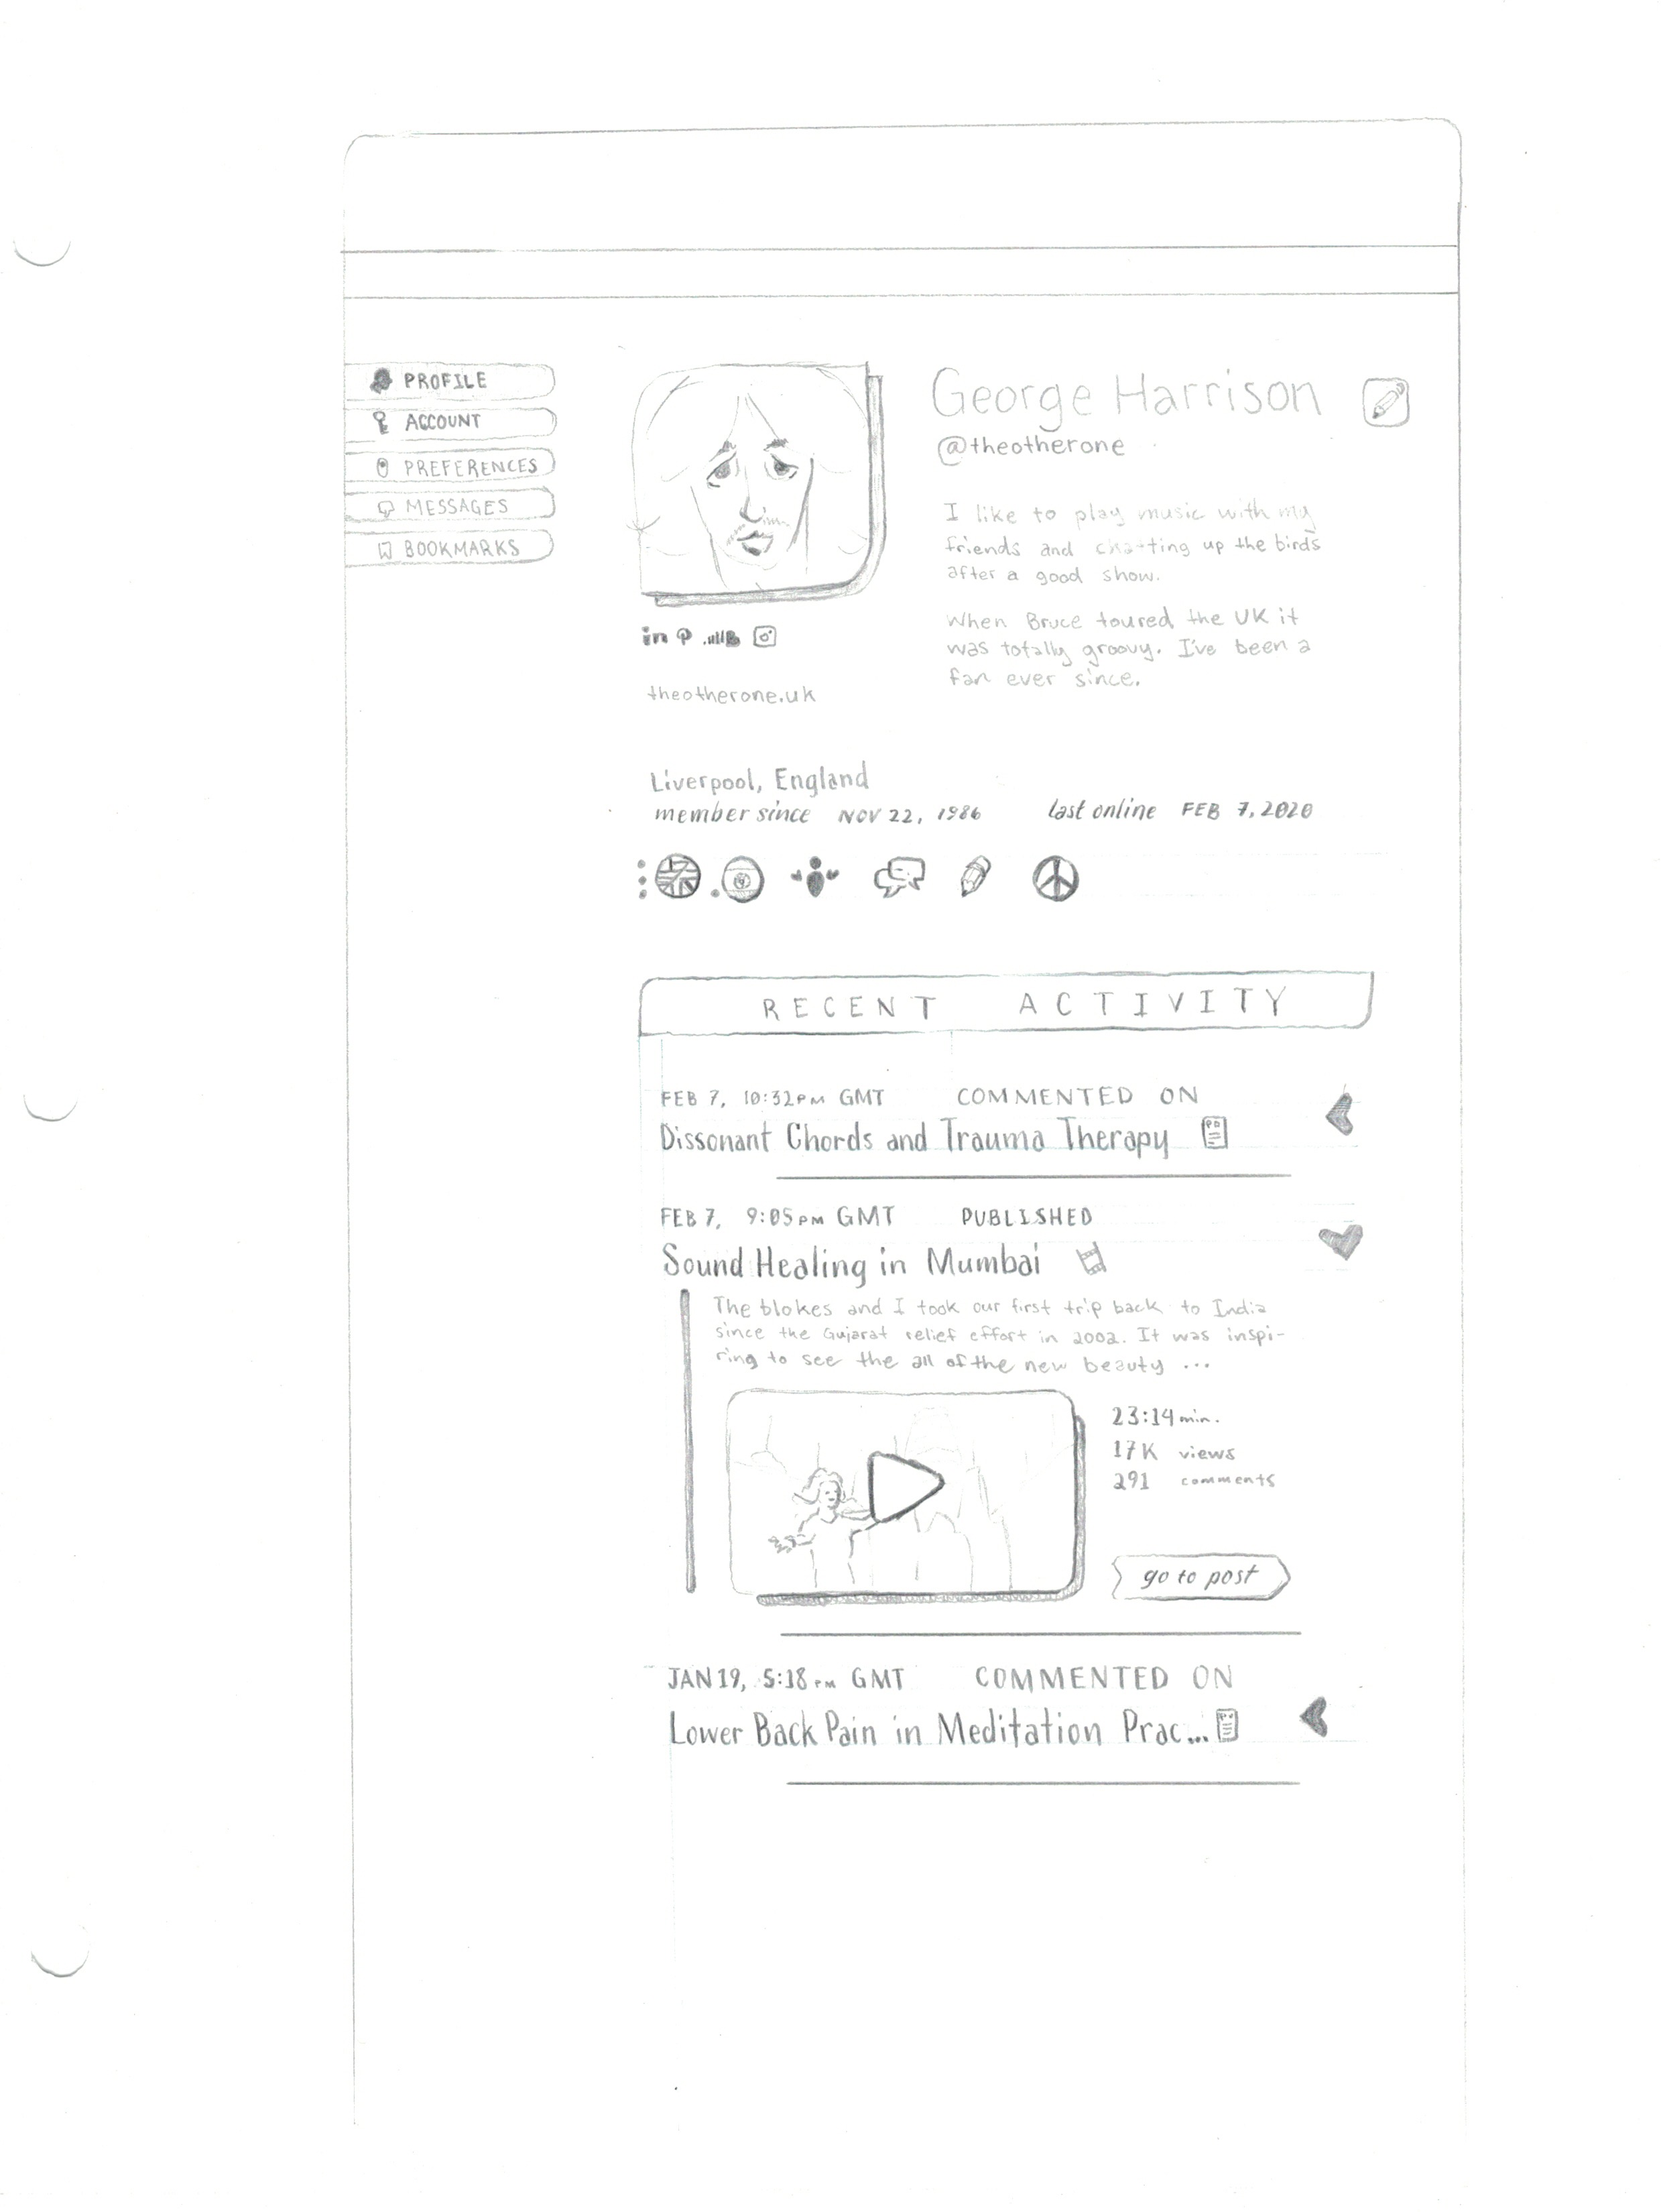 PROFILE
ACCOUNT
PREFERENCES
MESSAGES
BOOKMARKS
George Harrison
@theotherone
I like to play music with my
friends and chatting up the birds
after a good show.
When Bruce toured the UK it
was totally groovy. I've been a
fan ever since.
in
theotherone.uk
Liverpool, England
member since NOV 22, 1986 last online FEB 7, 2020
RECENT ACTIVITY
FEB 7, 10:32PM GMT COMMENTED ON
Dissonant Chords and Trauma Therapy
FEB 7, 9:05PM GMT PUBLISHED
Sound Healing in Mumbai
The blokes and I took our first trip back to India
since the Gujarat relief effort in 2002. It was inspi-
ring to see the all of the new beauty ...
23:14 min.
17K views
291 comments
go to post
JAN 19, 5:18PM GMT COMMENTED ON
Lower Back Pain in Meditation Prac...